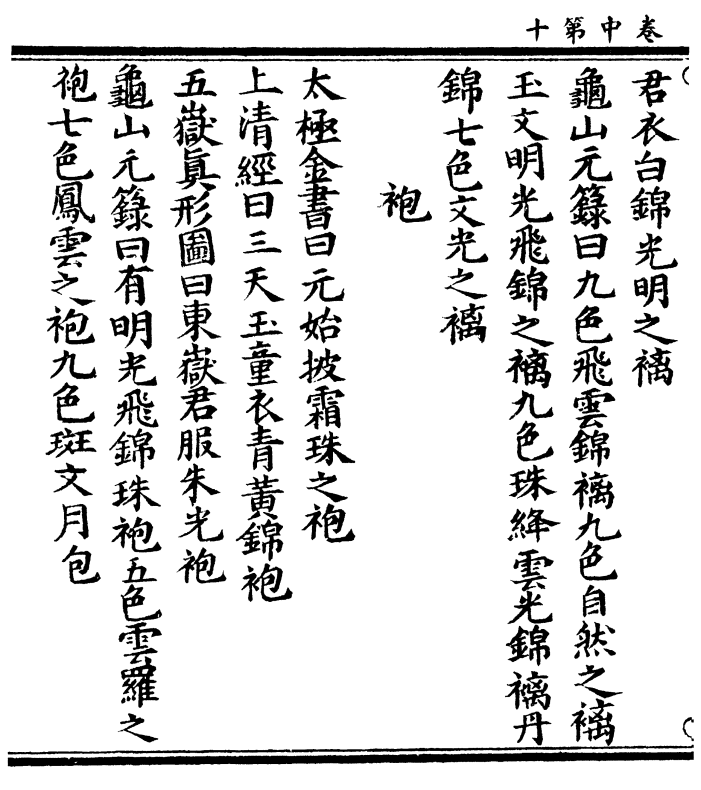 卷中第十
君衣白錦光明之襹
龜山元籙曰九色飛雲錦襹九色自然之襹
玉文明光飛錦之襹九色珠絳雲光錦襹丹
錦七色文光之襹
袍
太極金書曰元始披霜珠之袍
上清經曰三天玉童衣青黃錦袍
五嶽眞形圖曰東嶽君服朱光袍
龜山元籙曰有明光飛錦珠袍五色雲羅之
袍七色鳳雲之袍九色斑文月包